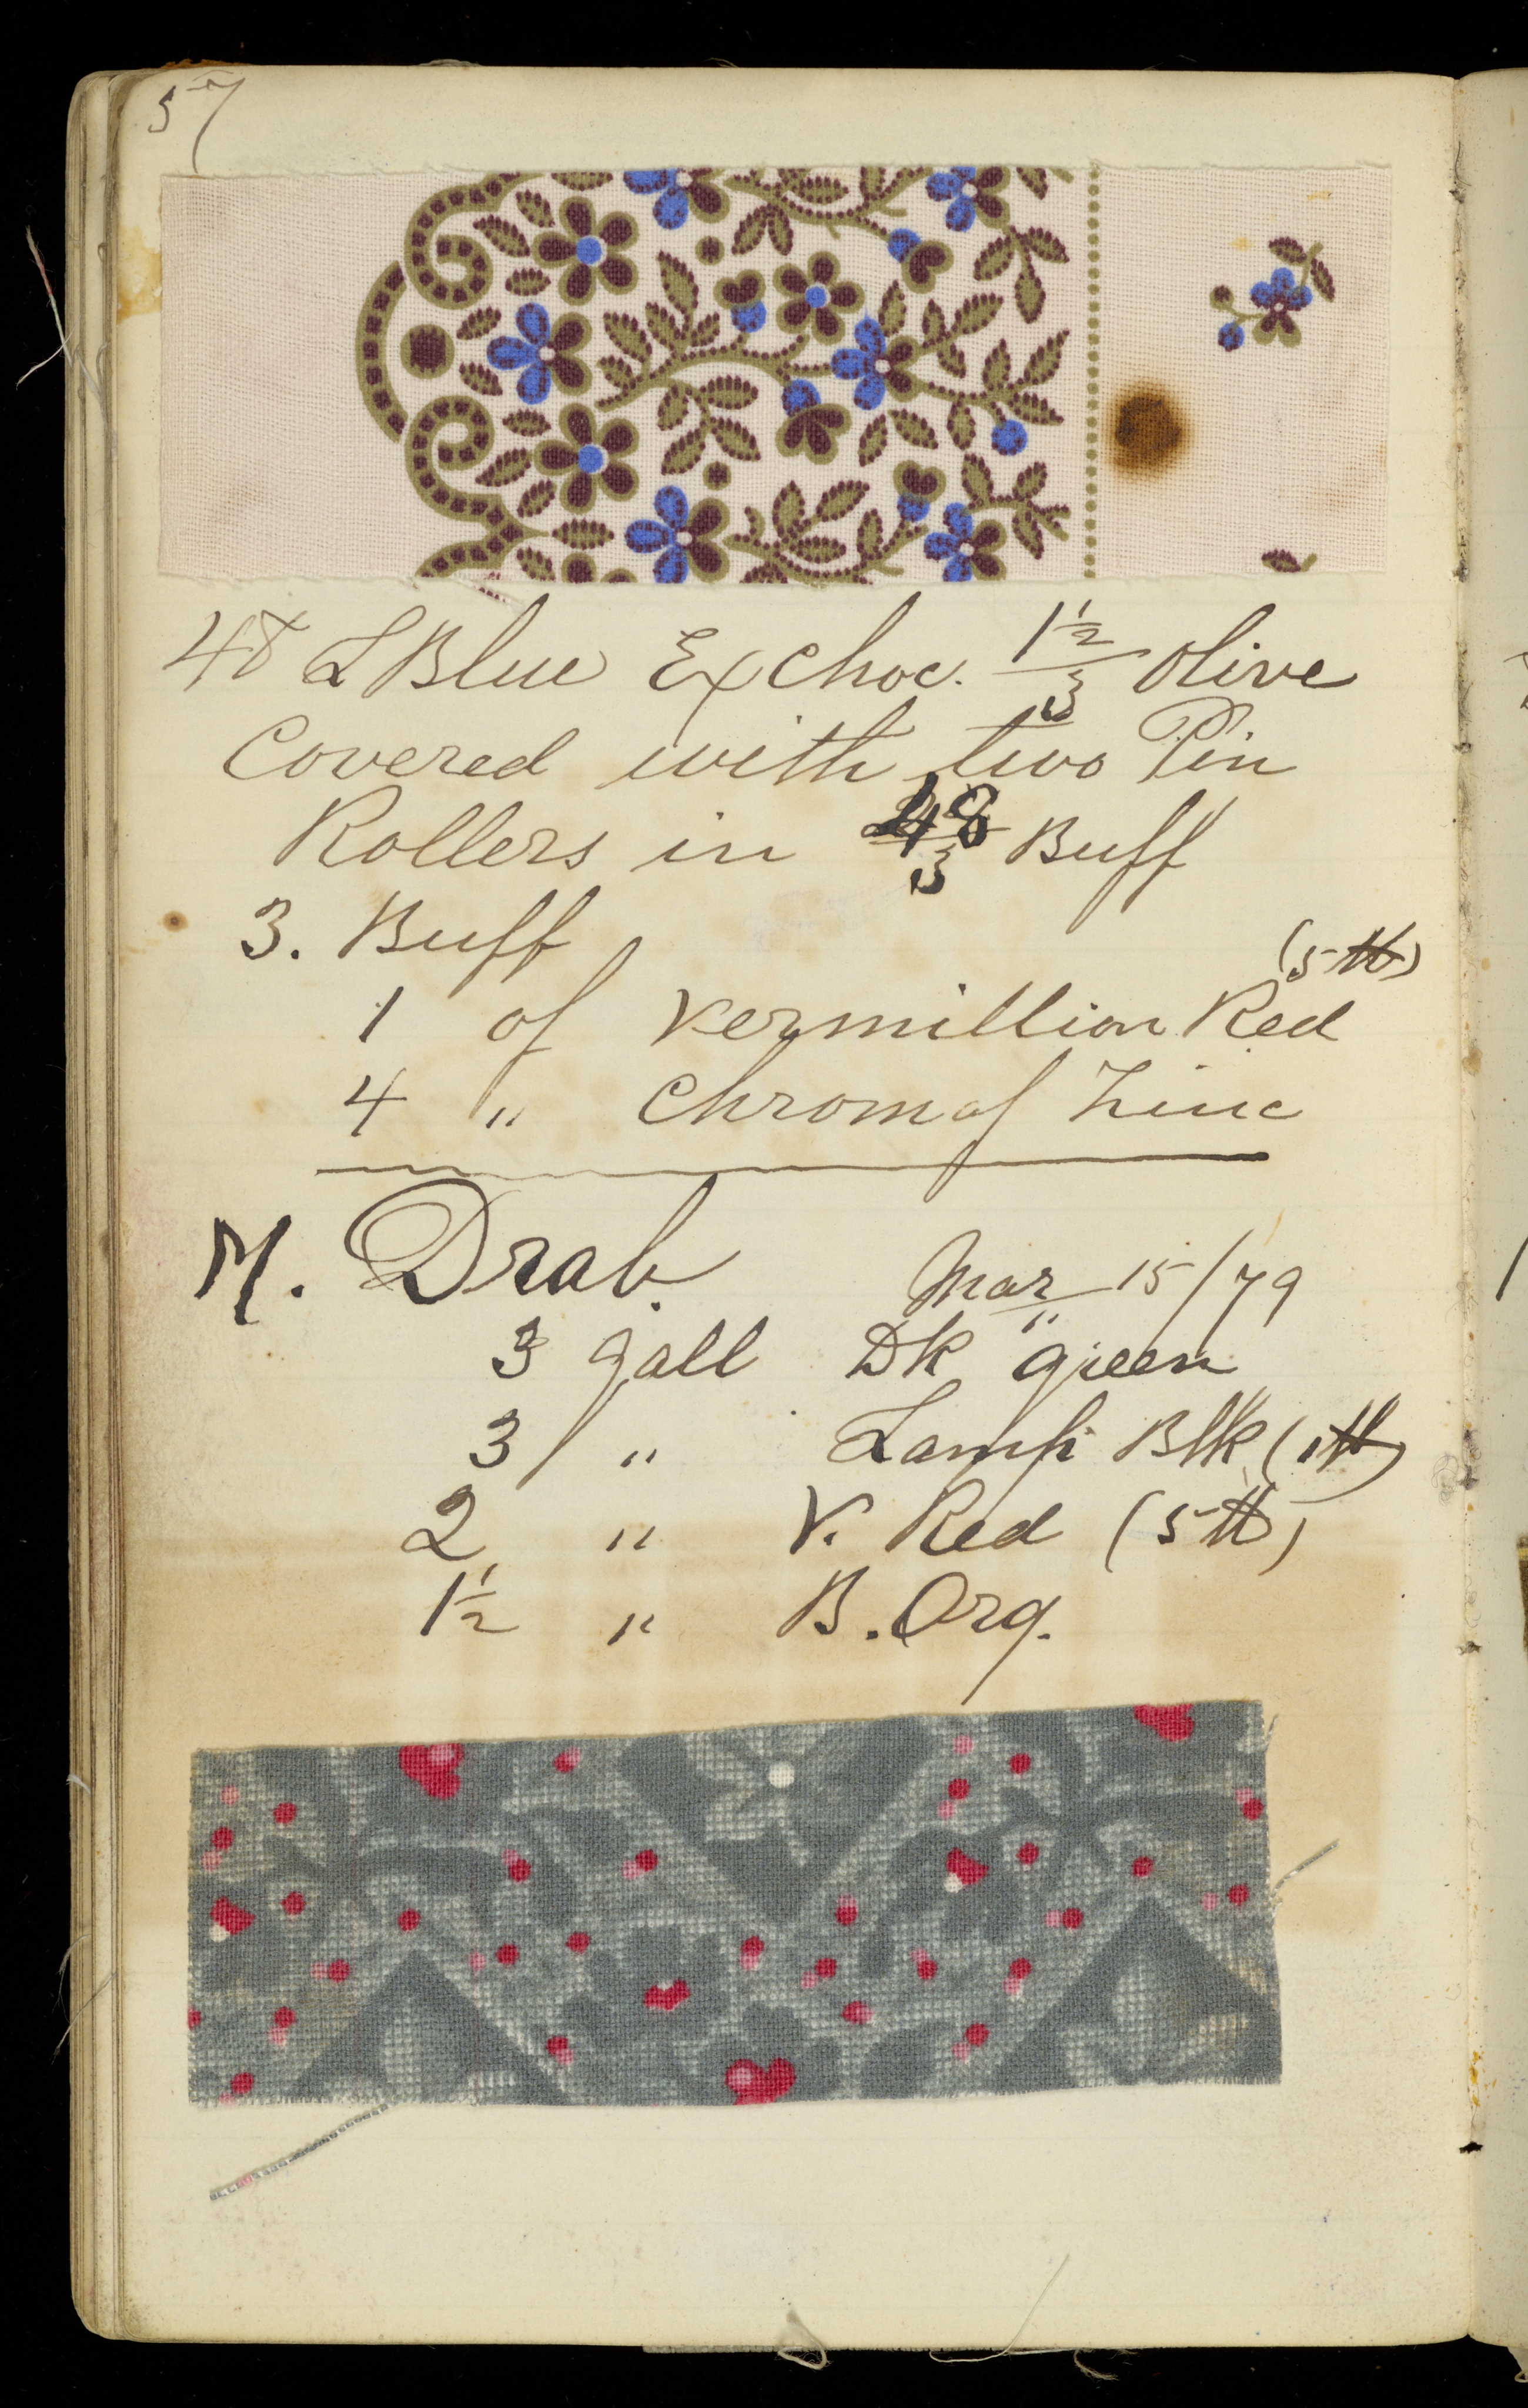 57
48 L Blue Ex Choc. 1½/3 Olive
Covered with two Pin
Rollers in 48/3 Buff
3. Buff
(5 ℔)
1 of Vermillion Red
4 " Chrom of Zinc
M. Drab.
Mar 15/79
3 gall Dk green
3 / " Lamp Blk (1 ℔)
2 " V. Red (5 ℔)
1½ " B. Org.